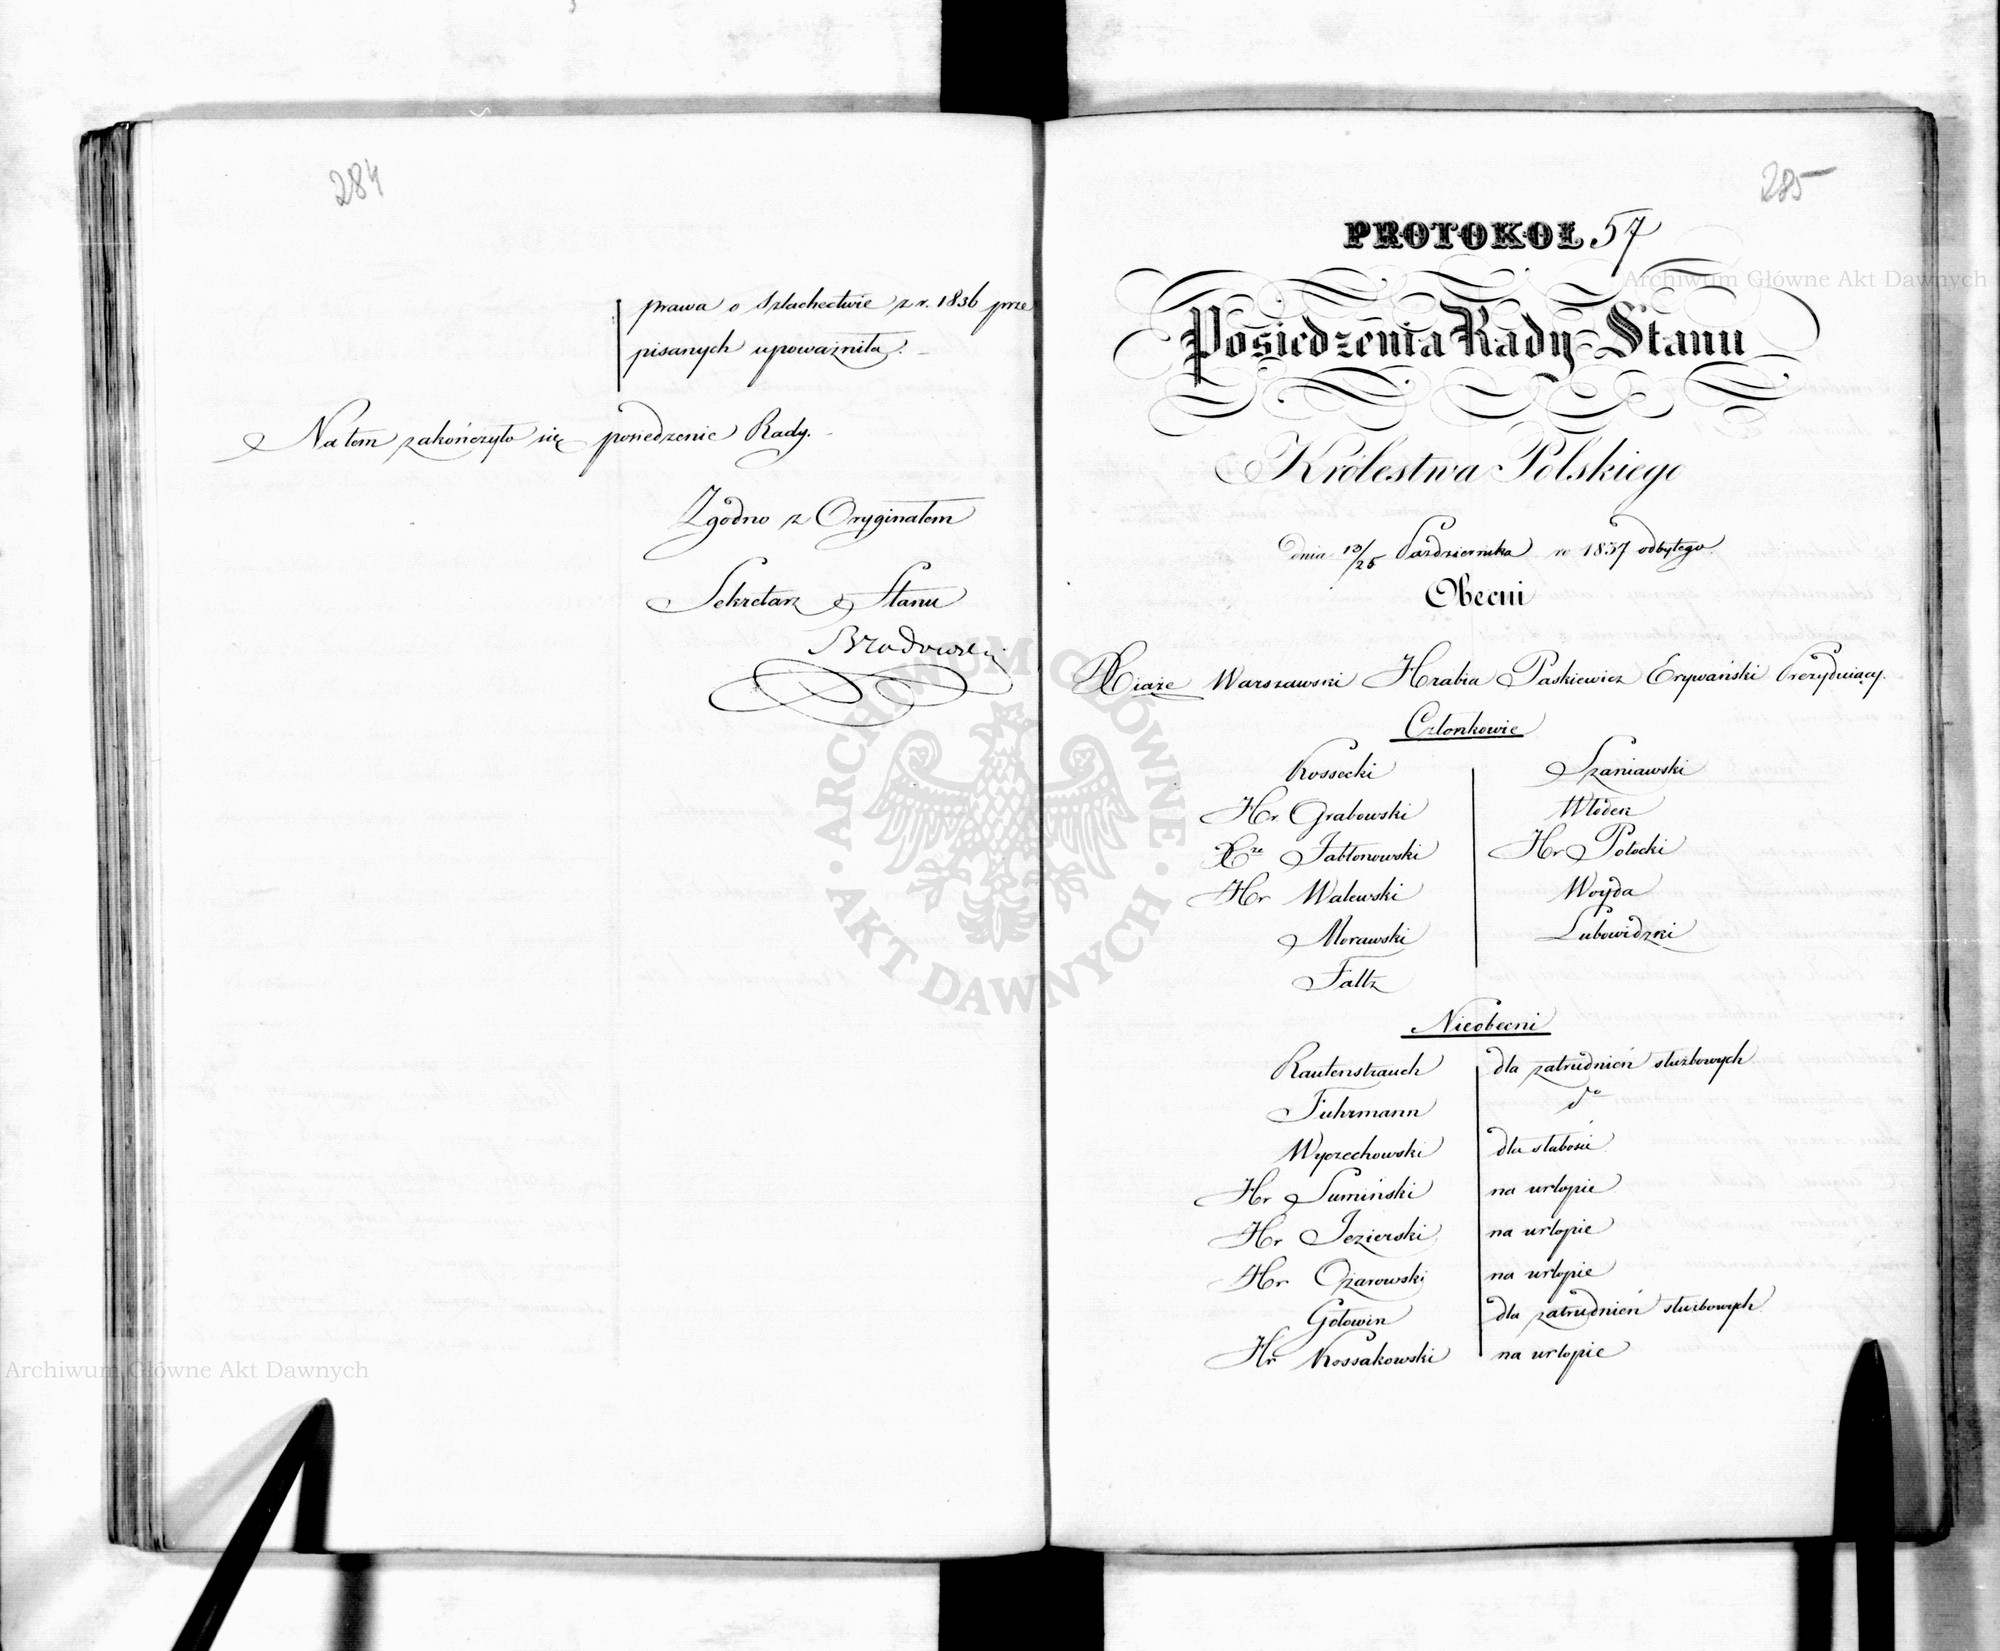 284
prawa o Szlachectwie z r. 1836 prze
pisanych upoważniła.
Na tem zakończyło się posiedzenie Rady.
Zgodno z Oryginałem
Sekretarz Stanu
Brzozowski
285
PROTOKOŁ 57
Posiedzenia Rady Stanu
Królestwa Polskiego
Dnia 13/25 Października r 1837 odbytego.
Obecni
Xiąże Warszawski Hrabia Paskiewicz Erywański Prezydujący.
Członkowie
Kossecki
Szaniawski
Hr. Grabowski
Włodek
Xże Jabłonowski
Hr Potocki
Hr Walewski
Woyda
Morawski
Lubowidzki
Faltz
Nieobecni
Rautenstrauch dla zatrudnień służbowych
Fuhrmann do
Wyczechowski dla słabości
Hr Sumiński na urlopie
Hr Jezierski na urlopie
Hr Ożarowski na urlopie
Gołowin dla zatrudnień służbowych
Hr Kossakowski na urlopie
Archiwum Główne Akt Dawnych
Archiwum Główne Akt Dawnych
ARCHIWUM GŁÓWNE AKT DAWNYCH